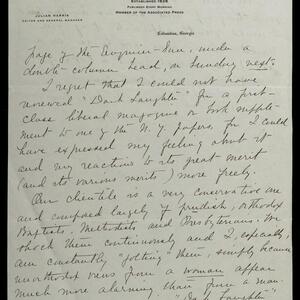 ESTABLISHED 1828
PUBLISHED EVERY MORNING
MEMBER OF THE ASSOCIATED PRESS
JULIAN HARRIS
EDITOR AND GENERAL MANAGER
Columbus, Georgia
page of the Enquirer-Sun, under a
double column head, on Sunday next.
I regret that I could not have
reviewed "Dark Laughter" for a first-
class liberal magazine or book supple-
ment to one of the N.Y. papers, for I could
have expressed my feeling about it
and my reactions to its great merit
(and its various merits) more freely.
Our clientile is a very conservative one
and composed largely of prudish, orthodox
Baptists, Methodists and Presbyterians. We
shock them continuously and I, especially,
am constantly "jolting" them, simply because
unorthodox views from a woman appear
much more alarming than from a man.
"Dark Laughter"